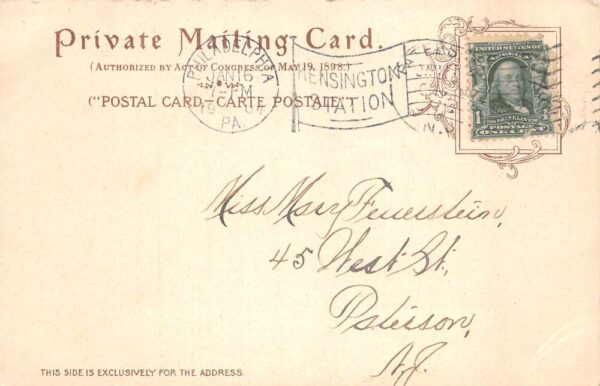 Private Mailing Card.
(AUTHORIZED BY ACT OF CONGRESS OF MAY 19, 1898.)
("POSTAL CARD–CARTE POSTALE")
PHILADELPHIA
JAN 16
7-PM
PA.
KENSINGTON
STATION
UNITED STATES OF
1
FRANKLIN
POSTAGE
ONE
Miss Mary Feuerstein,
45 West St,
Paterson,
N.J.
THIS SIDE IS EXCLUSIVELY FOR THE ADDRESS.